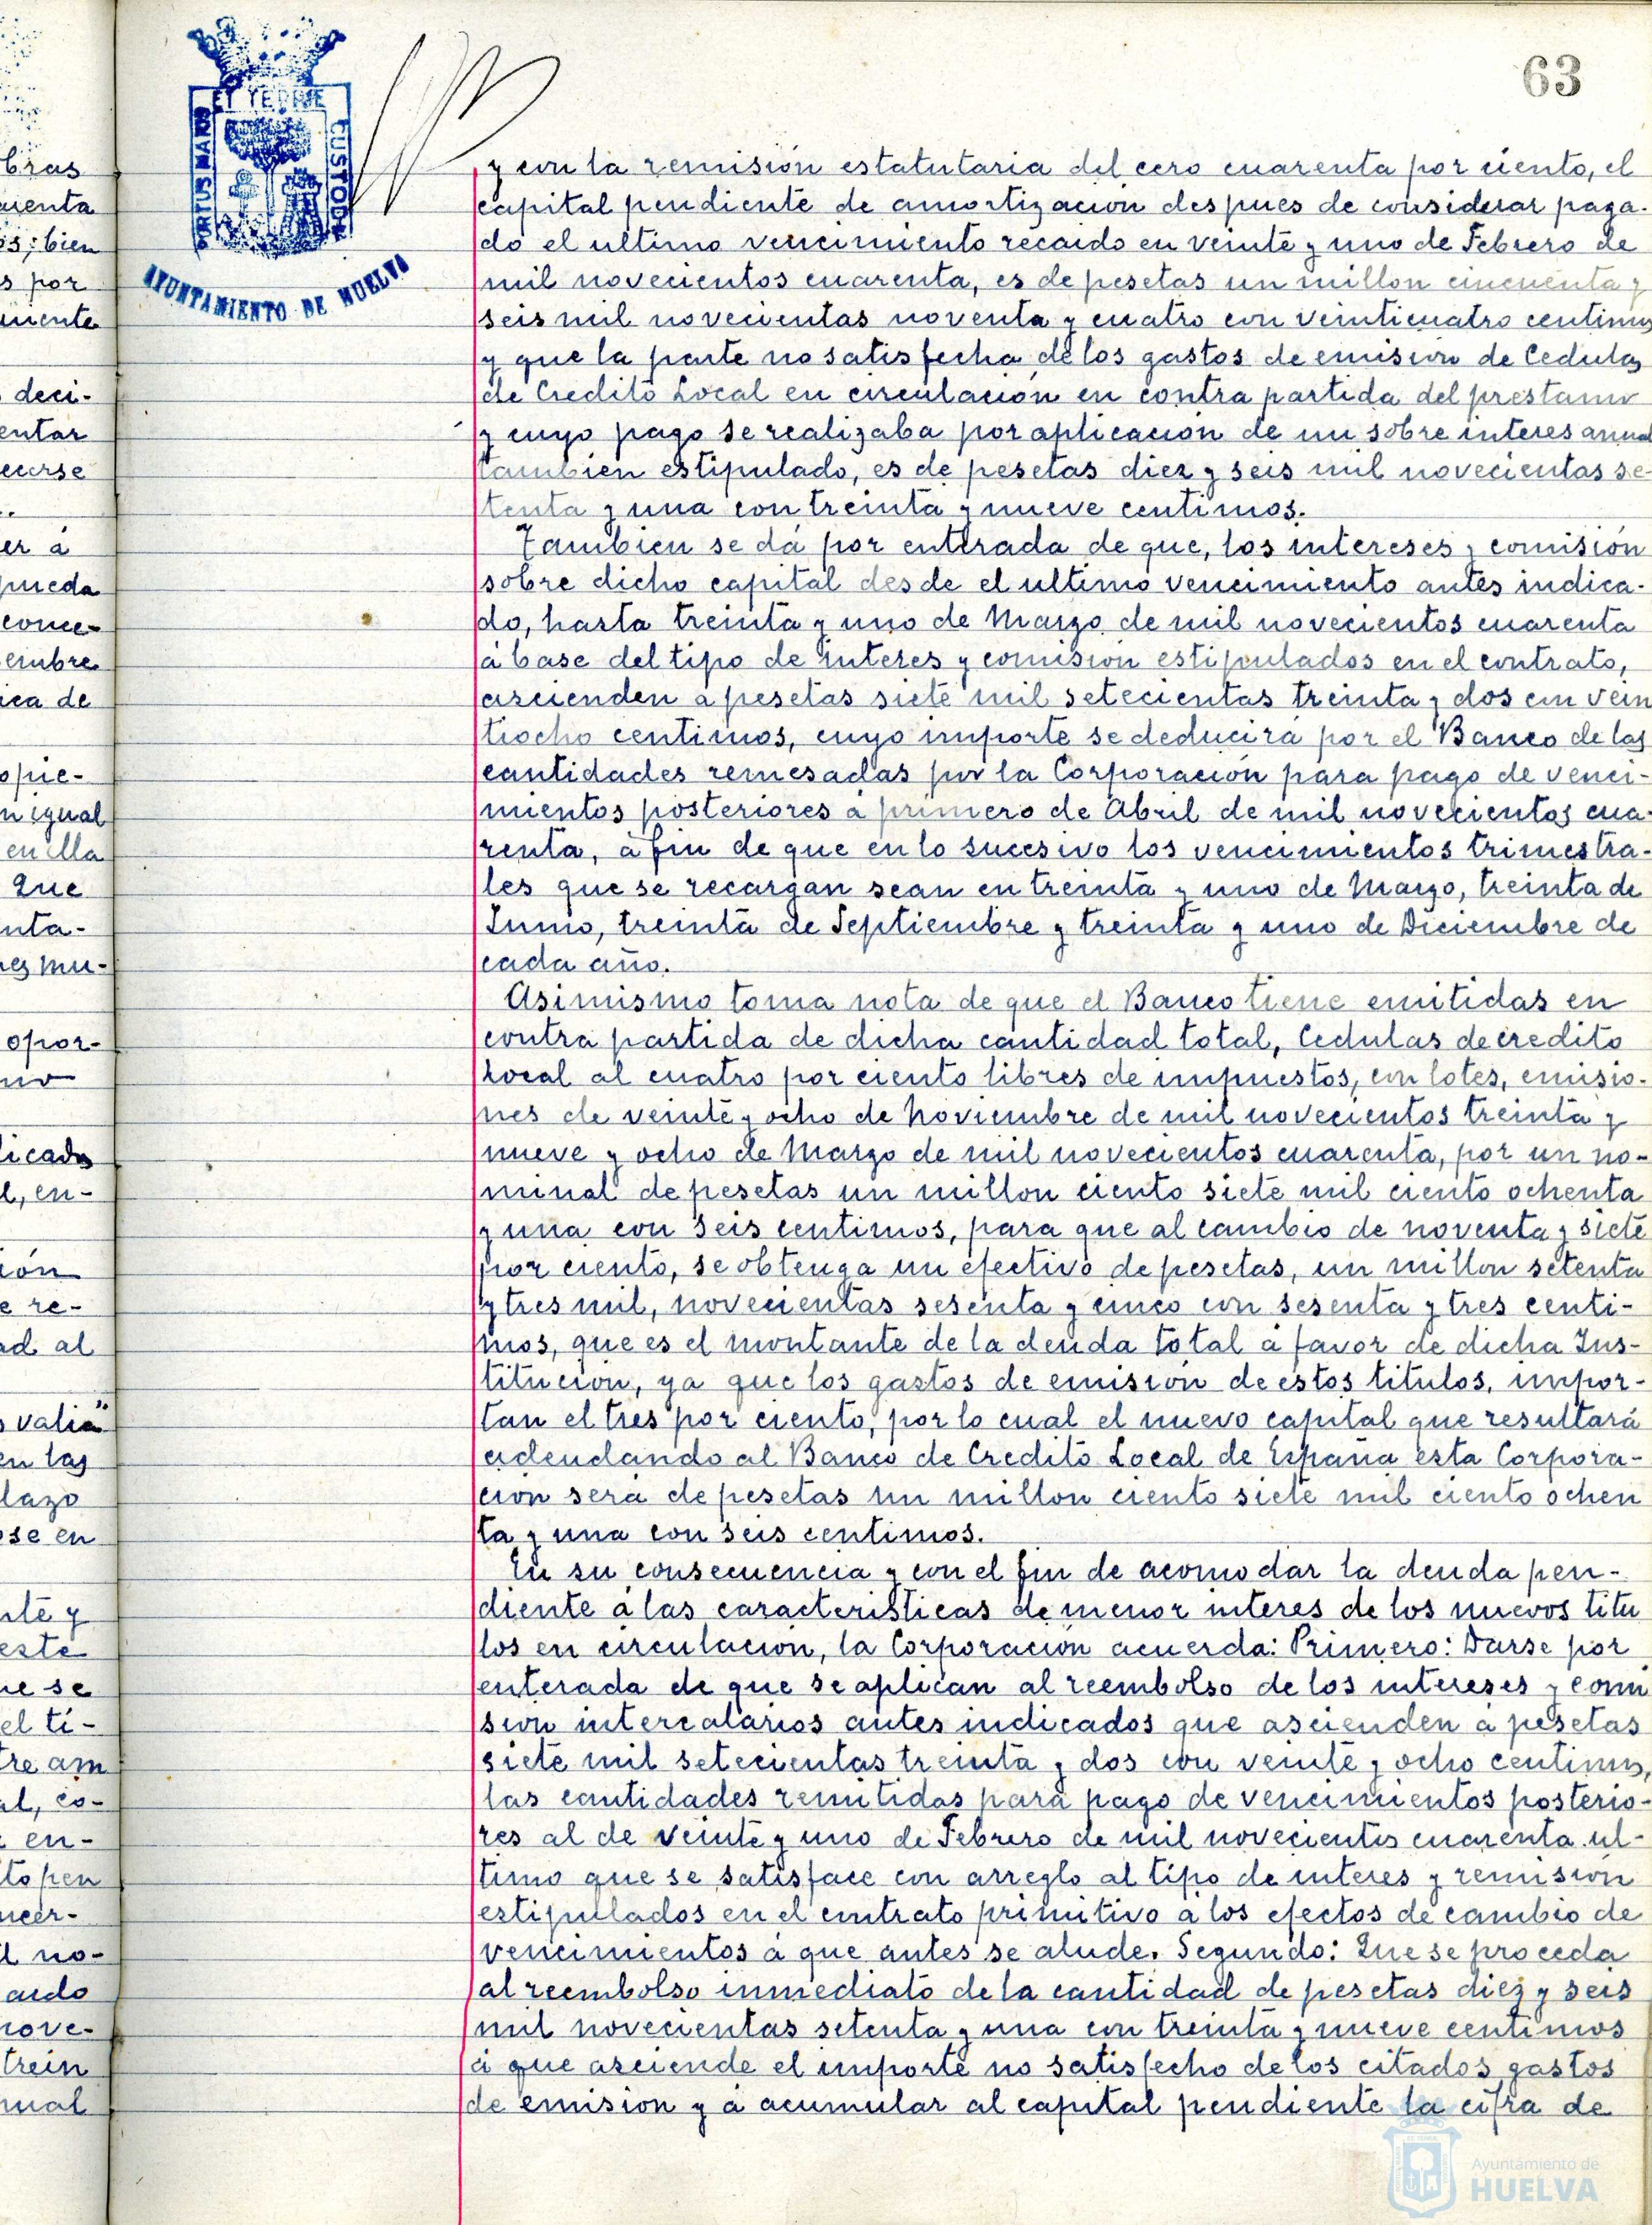 bras
uenta
os; bien
s por
mente
deci-
entar
ucirse
er á
pueda
conce-
embre
ica de
opie-
n igual
en ella
Que
nta-
nes mu-
opor-
no
licados
l, en-
ión
e re-
ad al
s valia"
en las
lazo
ose en
nte y
este
ue se
el tí-
tre am
al, co-
en-
to pen
ncer-
l no-
ardo
nove-
trein
nual
PORTUS MARIS ET TERRE CUSTODIA
AYUNTAMIENTO DE HUELVA
63
y con la remisión estatutaria del cero cuarenta por ciento, el
capital pendiente de amortizacion despues de considerar paga-
do el ultimo vencimiento recaido en veinte y uno de Febrero de
mil novecientos cuarenta, es de pesetas un millon cincuenta y
seis mil novecientas noventa y cuatro con veinticuatro centimos
y que la parte no satisfecha de los gastos de emision de Cedulas
de Credito Local en circulación en contra partida del prestamo
y cuyo pago se realizaba por aplicación de un sobre interes anual
tambien estipulado, es de pesetas diez y seis mil novecientas se-
tenta y una con treinta y nueve centimos.
Tambien se dá por enterada de que, los intereses y comisión
sobre dicho capital desde el ultimo vencimiento antes indica-
do, hasta treinta y uno de Marzo de mil novecientos cuarenta
á base del tipo de interes y comision estipulados en el contrato,
ascienden a pesetas siete mil setecientas treinta y dos con vein
tiocho centimos, cuyo importe se deducirá por el Banco de las
cantidades remesadas por la Corporación para pago de venci-
mientos posteriores a primero de Abril de mil novecientos cua-
renta, á fin de que en lo sucesivo los vencimientos trimestra-
les que se recargan sean en treinta y uno de Marzo, treinta de
Junio, treinta de Septiembre y treinta y uno de Diciembre de
cada año.
Asimismo toma nota de que el Banco tiene emitidas en
contra partida de dicha cantidad total, Cedulas de credito
Local al cuatro por ciento libres de impuestos, con lotes, emisio-
nes de veinte y ocho de Noviembre de mil novecientos treinta y
nueve y ocho de Marzo de mil novecientos cuarenta, por un no-
minal de pesetas un millon ciento siete mil ciento ochenta
y una con seis centimos, para que al cambio de noventa y siete
por ciento, se obtenga un efectivo de pesetas, un millon setenta
y tres mil, novecientas sesenta y cinco con sesenta y tres centi-
mos, que es el montante de la deuda total a favor de dicha Ins-
titucion, ya que los gastos de emision de estos titulos, impor-
tan el tres por ciento, por lo cual el nuevo capital que resultará
adeudando al Banco de Credito Local de España esta Corpora-
cion será de pesetas un millon ciento siete mil ciento ochen
ta y una con seis centimos.
En su consecuencia y con el fin de acomodar la deuda pen-
diente á las caracteristicas de menor interes de los nuevos titu
los en circulacion, la Corporación acuerda: Primero: Darse por
enterada de que se aplican al reembolso de los intereses y comi
sion intercalarios antes indicados que ascienden a pesetas
siete mil setecientas treinta y dos con veinte y ocho centimos,
las cantidades remitidas para pago de vencimientos posterio-
res al de veinte y uno de Febrero de mil novecientos cuarenta ul-
timo que se satisface con arreglo al tipo de interes y remision
estipulados en el contrato primitivo a los efectos de cambio de
vencimientos á que antes se alude. Segundo: Que se proceda
al reembolso inmediato de la cantidad de pesetas diez y seis
mil novecientas setenta y una con treinta y nueve centimos
á que asciende el importe no satisfecho de los citados gastos
de emision y á acumular al capital pendiente la cifra de
Ayuntamiento de
HUELVA